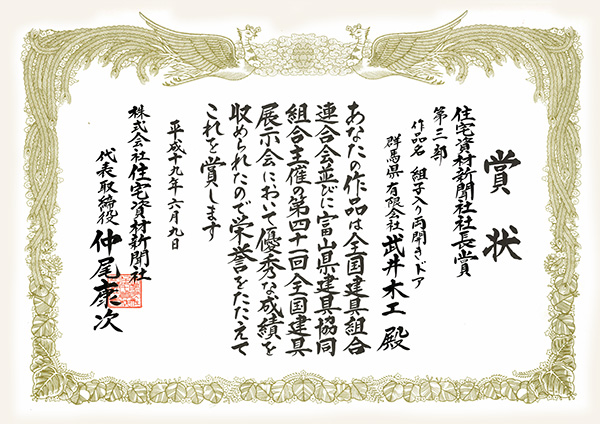 賞状
住宅資材新聞社社長賞
第三部
作品名 組子入り両開きドア
群馬県 有限会社 武井木工 殿
あなたの作品は全国建具組合
連合会並びに富山県建具協同
組合主催の第四十一回全国建具
展示会において優秀な成績を
収められたので栄誉をたたえて
これを賞します
平成十九年六月九日
株式会社 住宅資材新聞社
代表取締役 仲尾康次